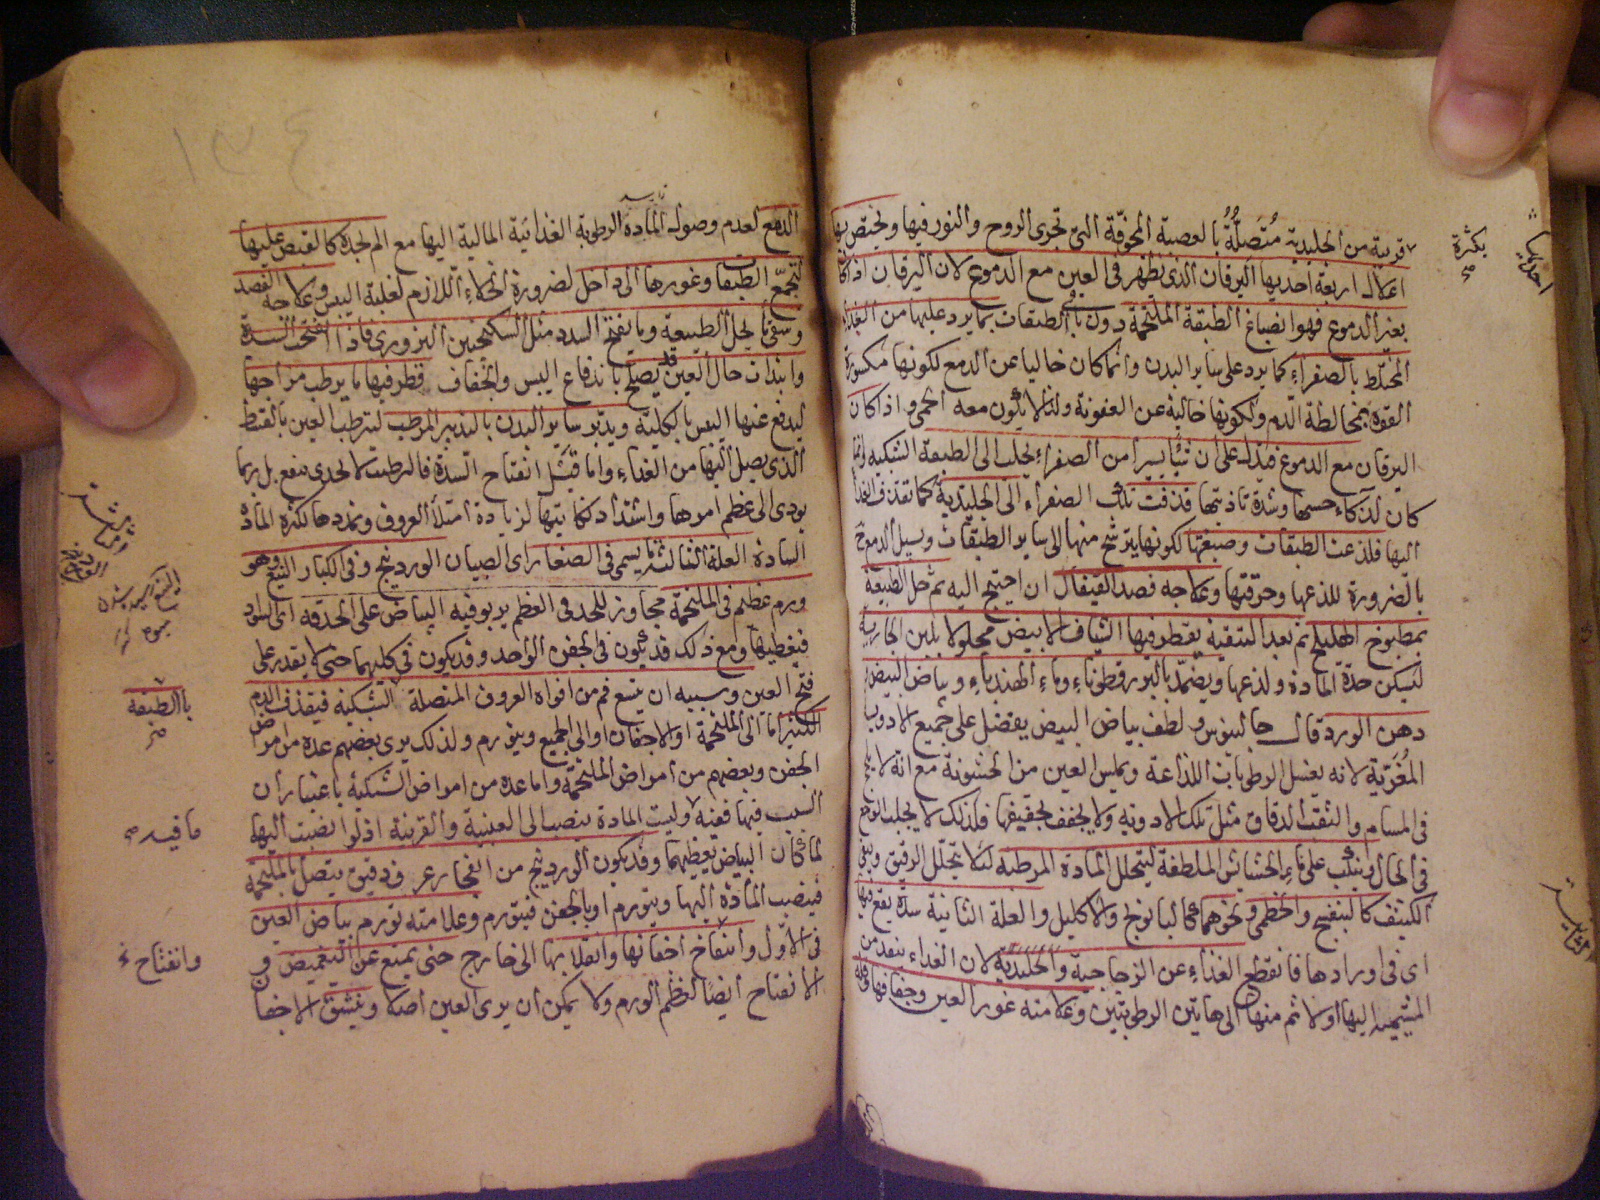 قريبة من الجليدية متصلة بالعصبة المجوفة التي تجرى الروح والنور فيها وتختص بها
اعلال اربعة احديها اليرقان الذى يظهر فى العين مع الدموع لان اليرقان اذا كان
بغير الدموع فهو انصباغ الطبقة الملتحمة دون باقى الطبقات بما يرد عليها من الغذاء
المختلط بالصفراء كما يرد على ساير البدن وانما كان خاليا عن الدمع لكونها مكسورة
القوة بمخالطة الدم ولكونها خالية عن العفونة ولذا لا يكون معه الحمى واذا كان
اليرقان مع الدموع فذلك على ان شيئا يسيرا من الصفراء يجلب الى الطبقة الشبكية وانما
كان لذكاء حسها وشدة تاذيها قذفت تلك الصفراء الى الجليدية كما تقذف الغذاء
اليها فلذعت الطبقات وصبغتها لكونها يترشح منها الى ساير الطبقات ويسيل الدموع
بالضرورة للذعها وحرقتها وعلاجه فصد القيفال ان احتيج اليه ثم حل الطبيعة
بمطبوخ الهليلج ثم بعد التنقية يقطر فيها الشياف الابيض محلولا بلبن الجارية
لتسكن حدة المادة ولذعها ويضمد بالبزرقطوناء وماء الهندباء وبياض البيض
دهن الورد قال جالينوس ولطف بياض البيض يفضل على جميع الادوية
المغرية لانه يغسل الرطوبات اللذاعة ويملس العين من الخشونة مع انه لا
فى المسام والثقب الدقاق مثل تلك الادوية ولا يجفف تجفيفها فلذلك لا يجلب الوجع
فى الحال ويكب على ماء الحشايش الملطفة ليتحلل المادة المرطبة لئلا يتحلل الرقيق ويبقى
الكثيف كالبنفسج والخطمى ونحوهما كالبابونج والاكليل والعلة الثانية سدة يقع فيها
اى فى اورادها فانقطع الغذاء عن الزجاجية والجليدية لان الغذاء ينفذ من
المشيمية اليها اولا ثم منها الى هاتين الرطوبتين وعلامته غور العين وجفافها وقلة
بكثرة
احديها
الدمع لعدم وصول المادة الرطوبة الغذائية المالية اليها مع الم لجدة كالقبض عليها
لتجمع الطبقات وغورها الى داخل لضرورة الخلاء اللازم لغلبة اليبس وعلاجه الفصد
وسقى ما يحل الطبيعة وما يفتح السدد مثل السكنجبين البزورى فاذا انفتحت السدة
وابتدات حال العين قد يصلح باندفاع اليبس والجفاف قطر فيها ما يرطب مزاجها
ليدفع عنها اليبس بالكلية ويدبر ساير البدن بالتدبير المرطب لترطب العين بالقطر
الذى يصل اليها من الغذاء واما قبل انفتاح السدة فالترطيب لا يجدى بنفع بل ربما
يودى الى عظم امرها واشتداد نكايتها لزيادة امتلاء العروق وتمددها لكثرة المادة
السادة العلة الثالثة ما يسمى فى الصغار اى الصبيان الوردينج وفى الكبار التبيغ وهو
ورم عظيم فى الملتحمة مجاوز للحد فى العظم يربو فيه البياض على الحدقة اى السواد
فيغطيها ومع ذلك قد يكون فى الجفن الواحد وقد يكون فى كليهما حتى لا يقدر على
فتح العين وسببه ان يتسع فم من افواه العروق المتصلة الشبكية فيقذف الدم
الكثير اما الى الملتحمة او الاجفان او الى الجميع ويتورم ولذلك يرى بعضهم عده من امراض
الجفن وبعضهم من امراض الملتحمة واما عده من امراض الشبكية باعتبار ان
السبب فيها فعينه لا وليت المادة تنصب الى العنبية والقرنية اذ لو انصبت اليها
لما كان البياض يغطيهما وقد يكون الوردينج من انفجار عرق دقيق يتصل بالملتحمة
فينصب المادة اليها ويتورم او بالجفن فيتورم وعلامته تورم بياض العين
فى الاول وانتفاخ اجفانها وانقلابها الى خارج حتى يمتنع عن التغميض و
الانفتاح ايضا لعظم الورم ولا يمكن ان يرى العين اصلا وينشق الاجفان
بالطبقة
ما فيه
وانفتاح
١٣٤